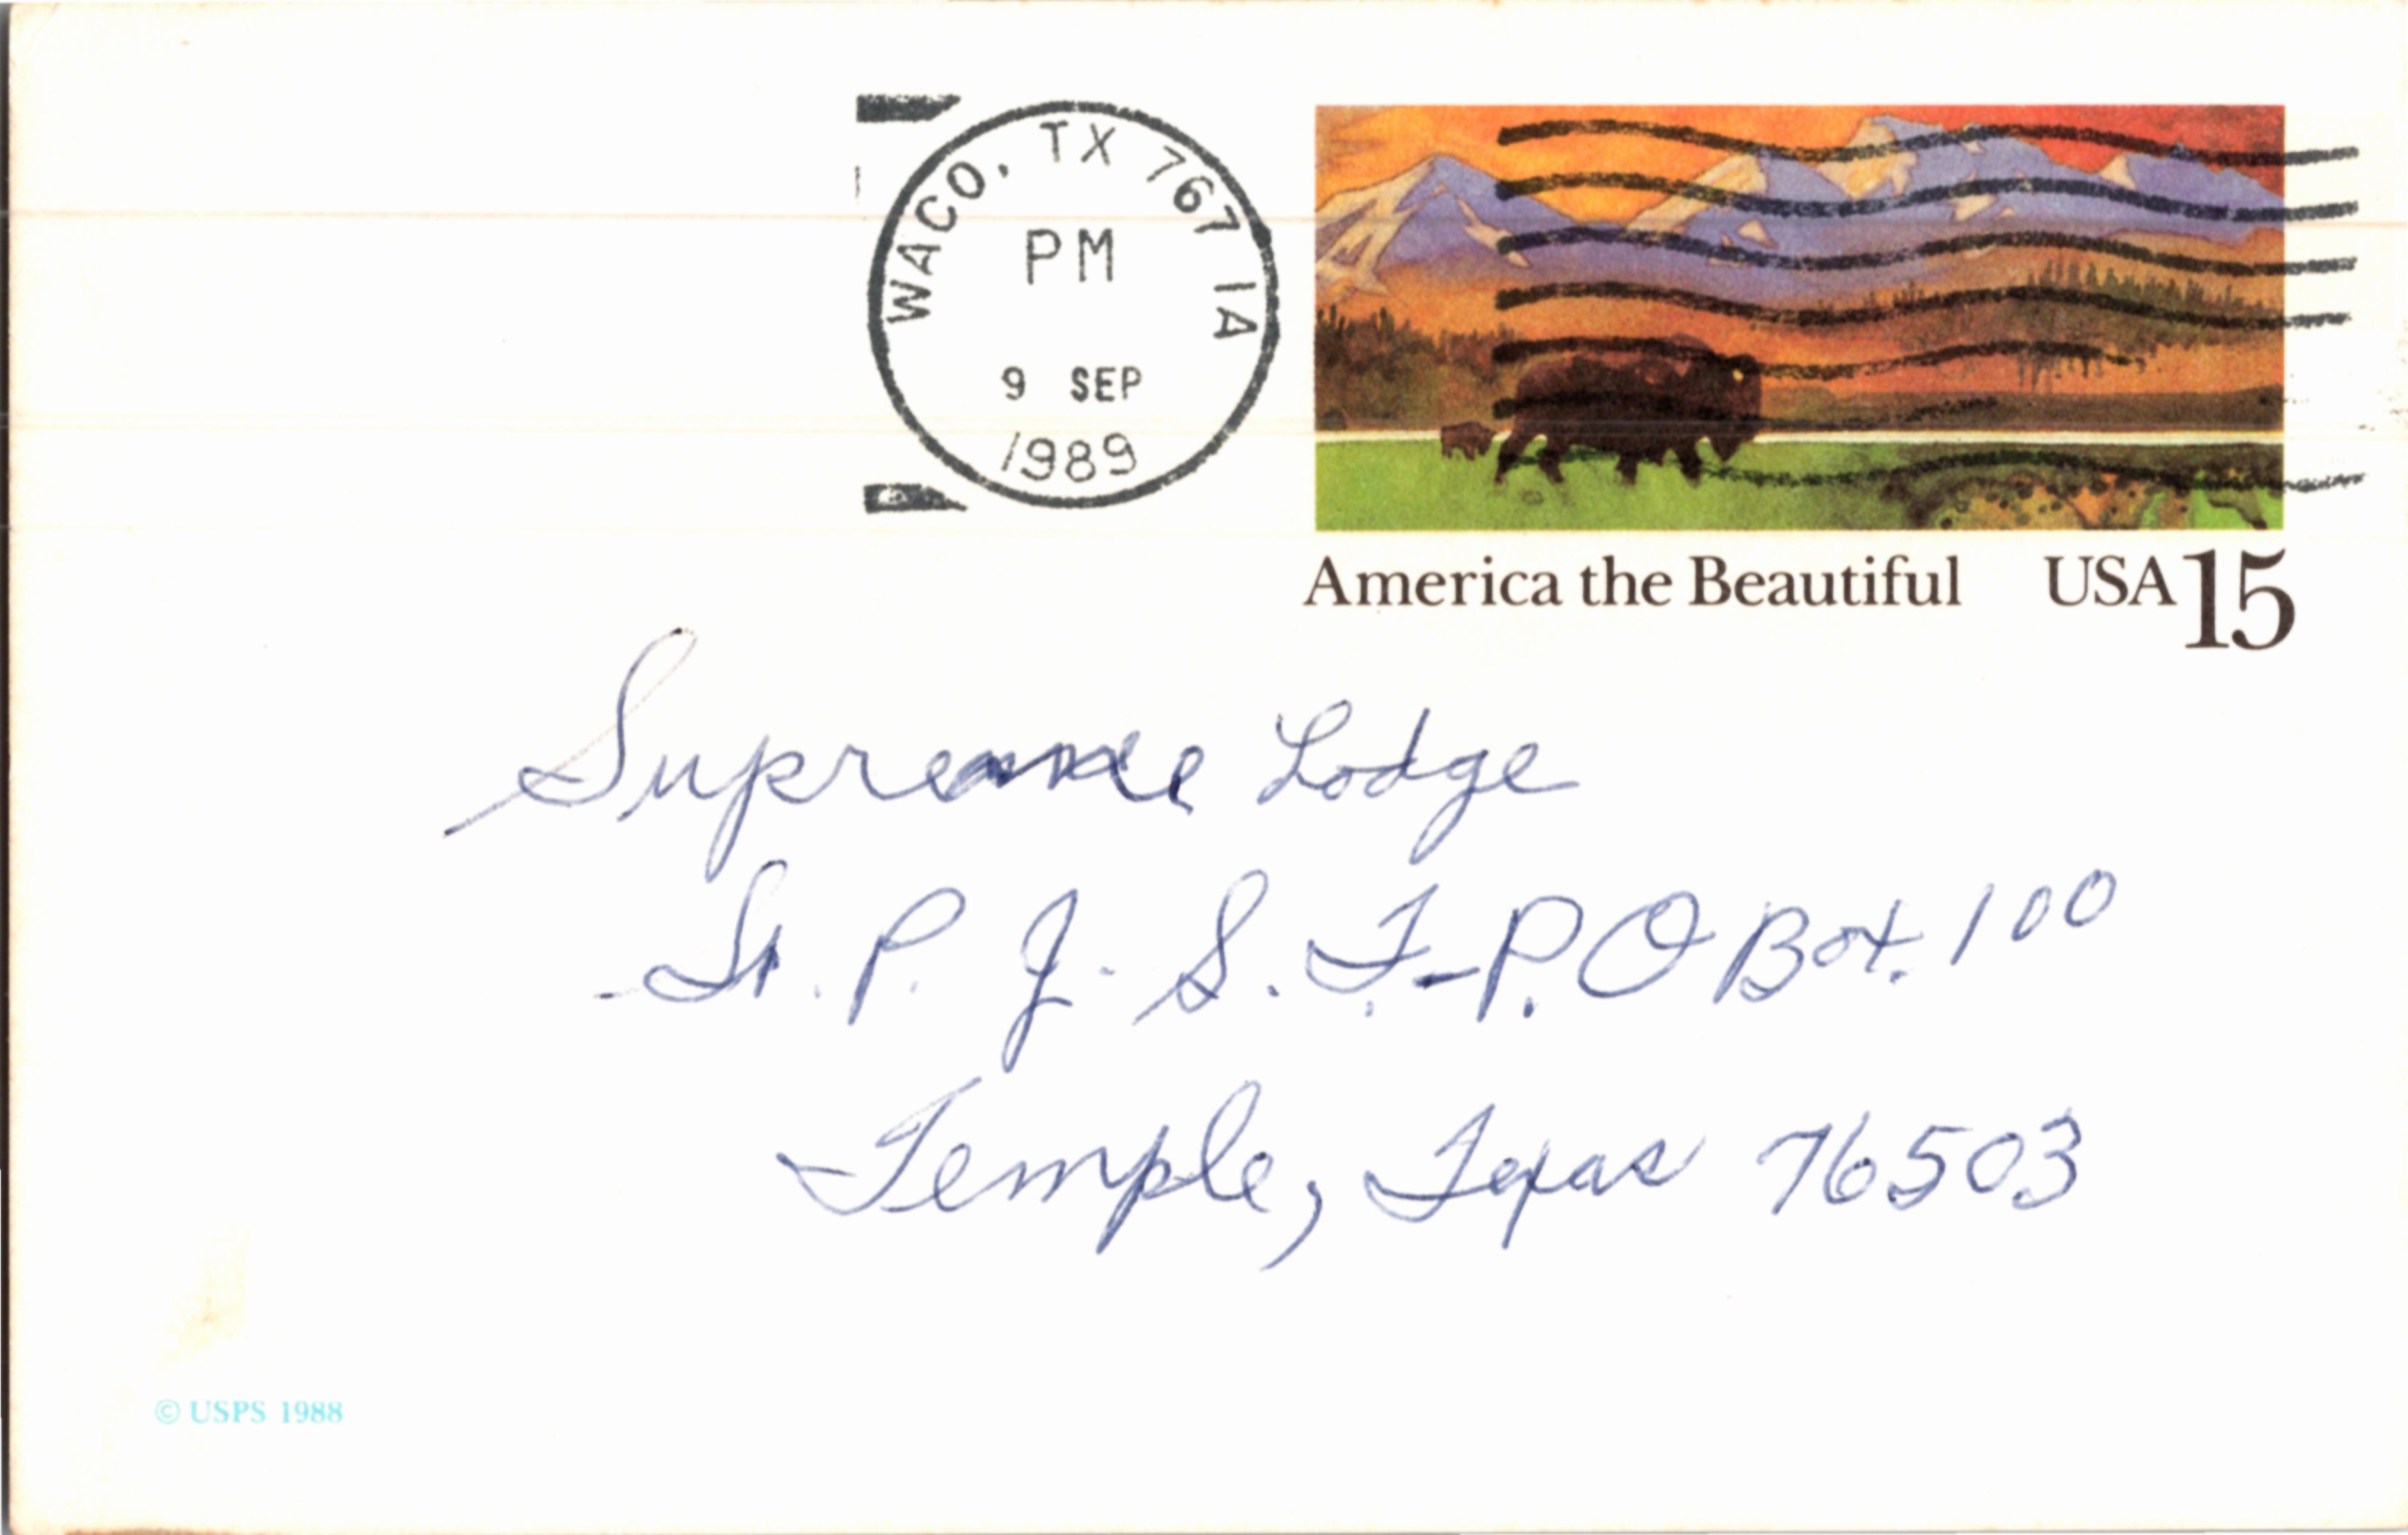 WACO, TX 767 1A
PM
9 SEP
1989
America the Beautiful USA 15
Supreme Lodge
S. P. J. S. T. - P.O Box. 100
Temple, Texas 76503
© USPS 1988